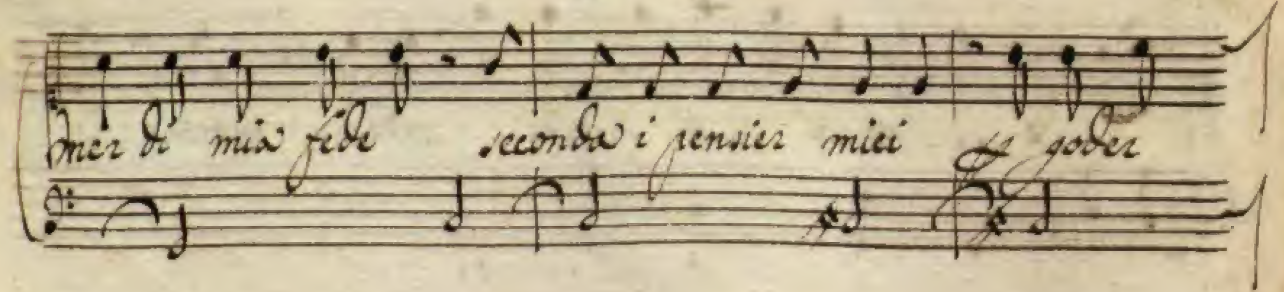 mer di mia fede seconda i pensier miei e goder